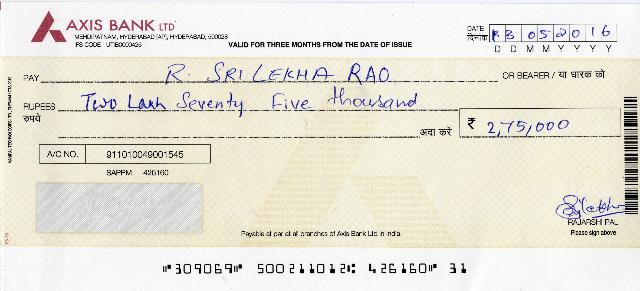 AXIS BANK LTD
MEHDIPATNAM, HYDERABAD [AP], HYDERABAD, 500028
IFS CODE : UTIB0000426
VALID FOR THREE MONTHS FROM THE DATE OF ISSUE
DATE
दिनांक 052016
D D M M Y Y Y Y
PAY R. SRILEKHA RAO OR BEARER / या धारक को
RUPEES Two Lakh Seventy Five thousand
रुपये अदा करें ₹ 2,75,000
A/C NO. 911010049001545
SAPPM 426160
RAJARSHI PAL
Payable at par at all branches of Axis Bank Ltd in India.
Please sign above
"309069" 500211012: 426160" 31